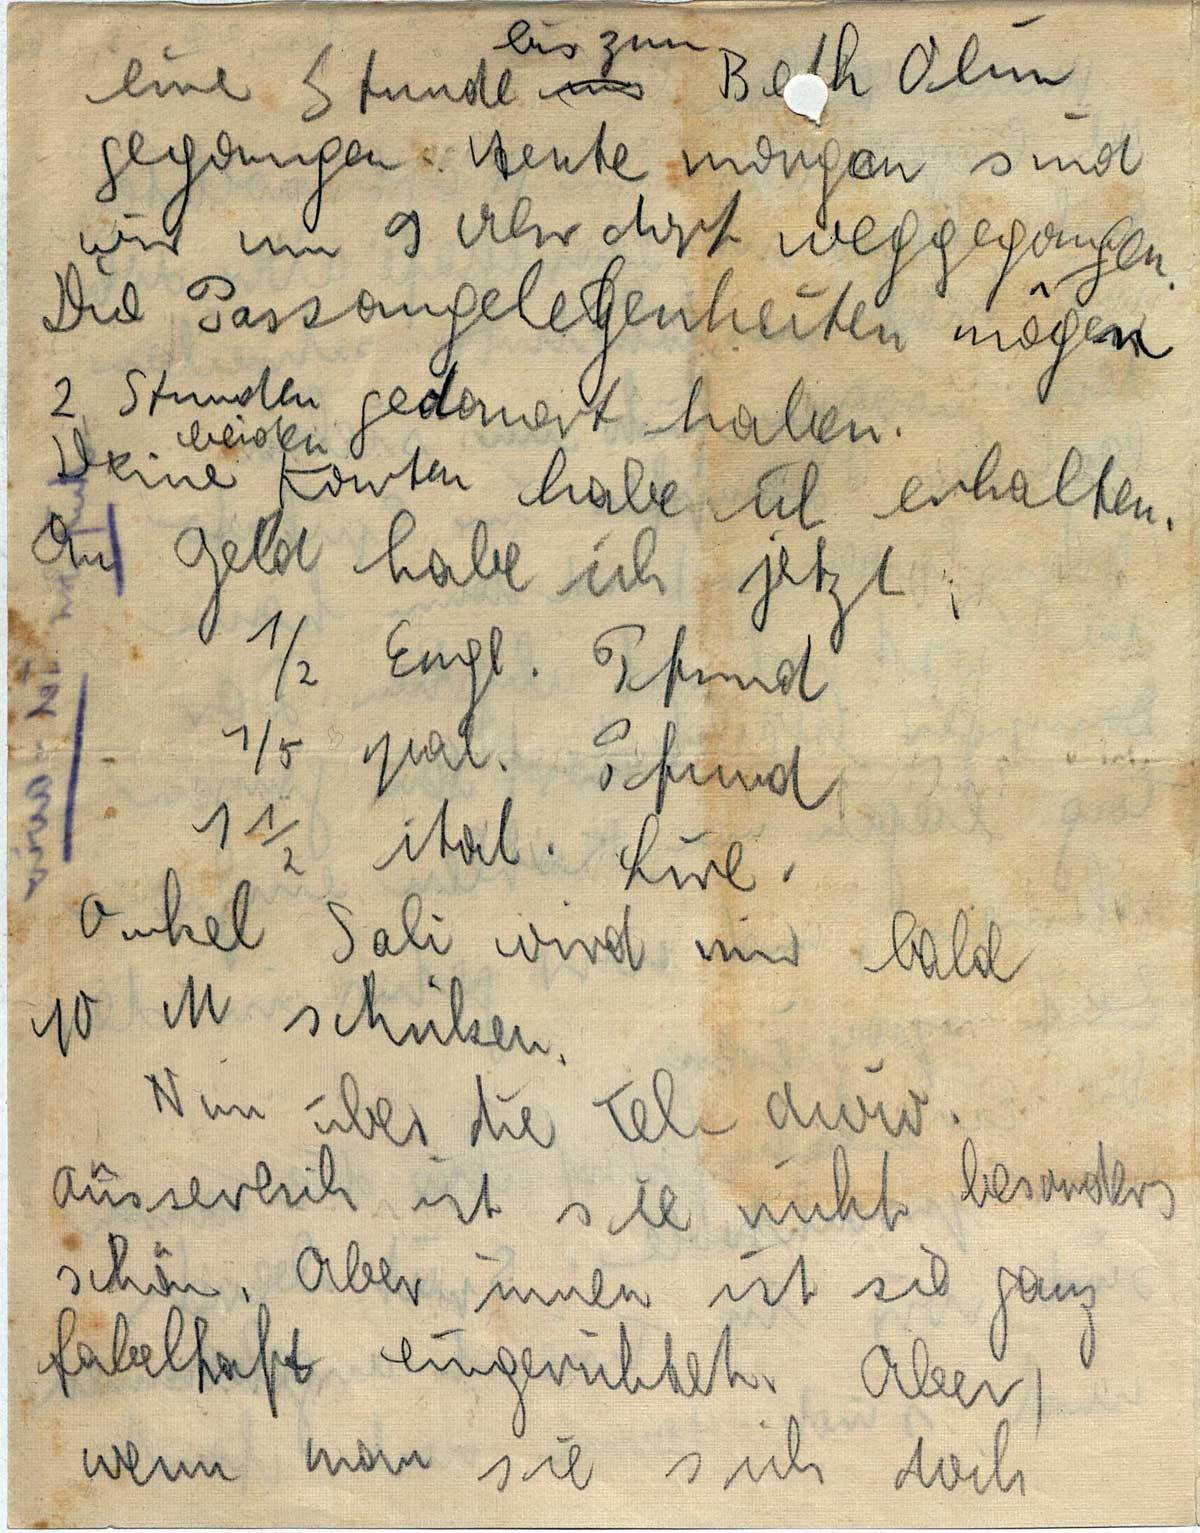 eine Stunde bis zum Beth Olim
gegangen. Heute morgen sind
wir um 9 Uhr dort weggegangen.
Die Passangelegenheiten mögen
2 Stunden gedauert haben.
Deine beiden Karten habe ich erhalten.
An Geld habe ich jetzt:
1/2 Engl. Pfund
1/5 pal. Pfund
1 1/2 ital. Lire.
Onkel Sali wird mir bald
10 M schicken.
Nun über die Tel Aviv.
Äusserlich ist sie nicht besonders
schön. Aber innen ist sie ganz
fabelhaft eingerichtet. Aber,
wenn man sie sich doch